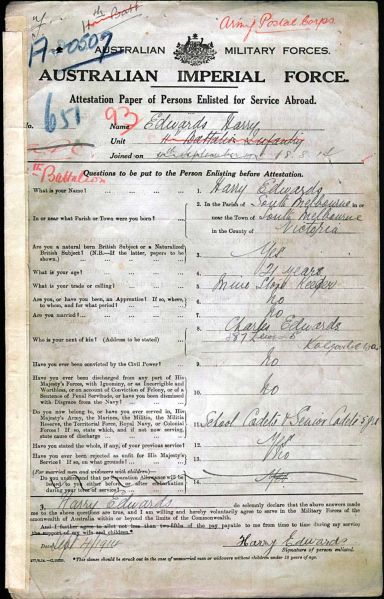 Army Postal Corps
AUSTRALIAN MILITARY FORCES.
AUSTRALIAN IMPERIAL FORCE.
Attestation Paper of Persons Enlisted for Service Abroad.
651
93
No. Name Edwards Harry
Unit Battalion Infantry
Joined on
Battalion
Questions to be put to the Person Enlisting before Attestation.
What is your Name? 1. Harry Edwards
In or near what Parish or Town were you born? 2. In the Parish of South Melbourne in or
near the Town of South Melbourne
in the County of Victoria
Are you a natural born British Subject or a Naturalized
British Subject? (N.B.—If the latter, papers to be
shown.) 3. Yes
What is your age? 4. 21 years
What is your trade or calling? 5. Mine Store Keeper
Are you, or have you been, an Apprentice? If so, where,
to whom, and for what period? 6. No
Are you married? 7. No
Who is your next of kin? (Address to be stated) 8. Charles Edwards
Have you ever been convicted by the Civil Power? 9. No
Have you ever been discharged from any part of His
Majesty's Forces, with Ignominy, or as Incorrigible and
Worthless, or on account of Conviction of Felony, or of a
Sentence of Penal Servitude, or have you been dismissed
with Disgrace from the Navy? 10. No
Do you now belong to, or have you ever served in, His
Majesty's Army, the Marines, the Militia, the Militia
Reserve, the Territorial Force, Royal Navy, or Colonial
Forces? If so, state which, and if not now serving,
state cause of discharge 11. School Cadets & Senior Cadets
Have you stated the whole, if any, of your previous service? 12. Yes
Have you ever been rejected as unfit for His Majesty's
Service? If so, on what grounds? 13. No
(For married men and widowers with children)
Do you understand that no Separation Allowance will be
issued to you either before or after embarkation
during your term of service? 14.
I, Harry Edwards do solemnly declare that the above answers made
by me to the above questions are true, and I am willing and hereby voluntarily agree to serve in the Military Forces of the
Commonwealth of Australia within or beyond the limits of the Commonwealth.
And I further agree to allot not less than two-fifths of the pay payable to me from time to time during my service
for the support of my wife and children.
Date Sept 4/1914 Harry Edwards
Signature of person enlisted.
*This clause should be struck out in the case of unmarried men or widowers without children under 18 years of age.